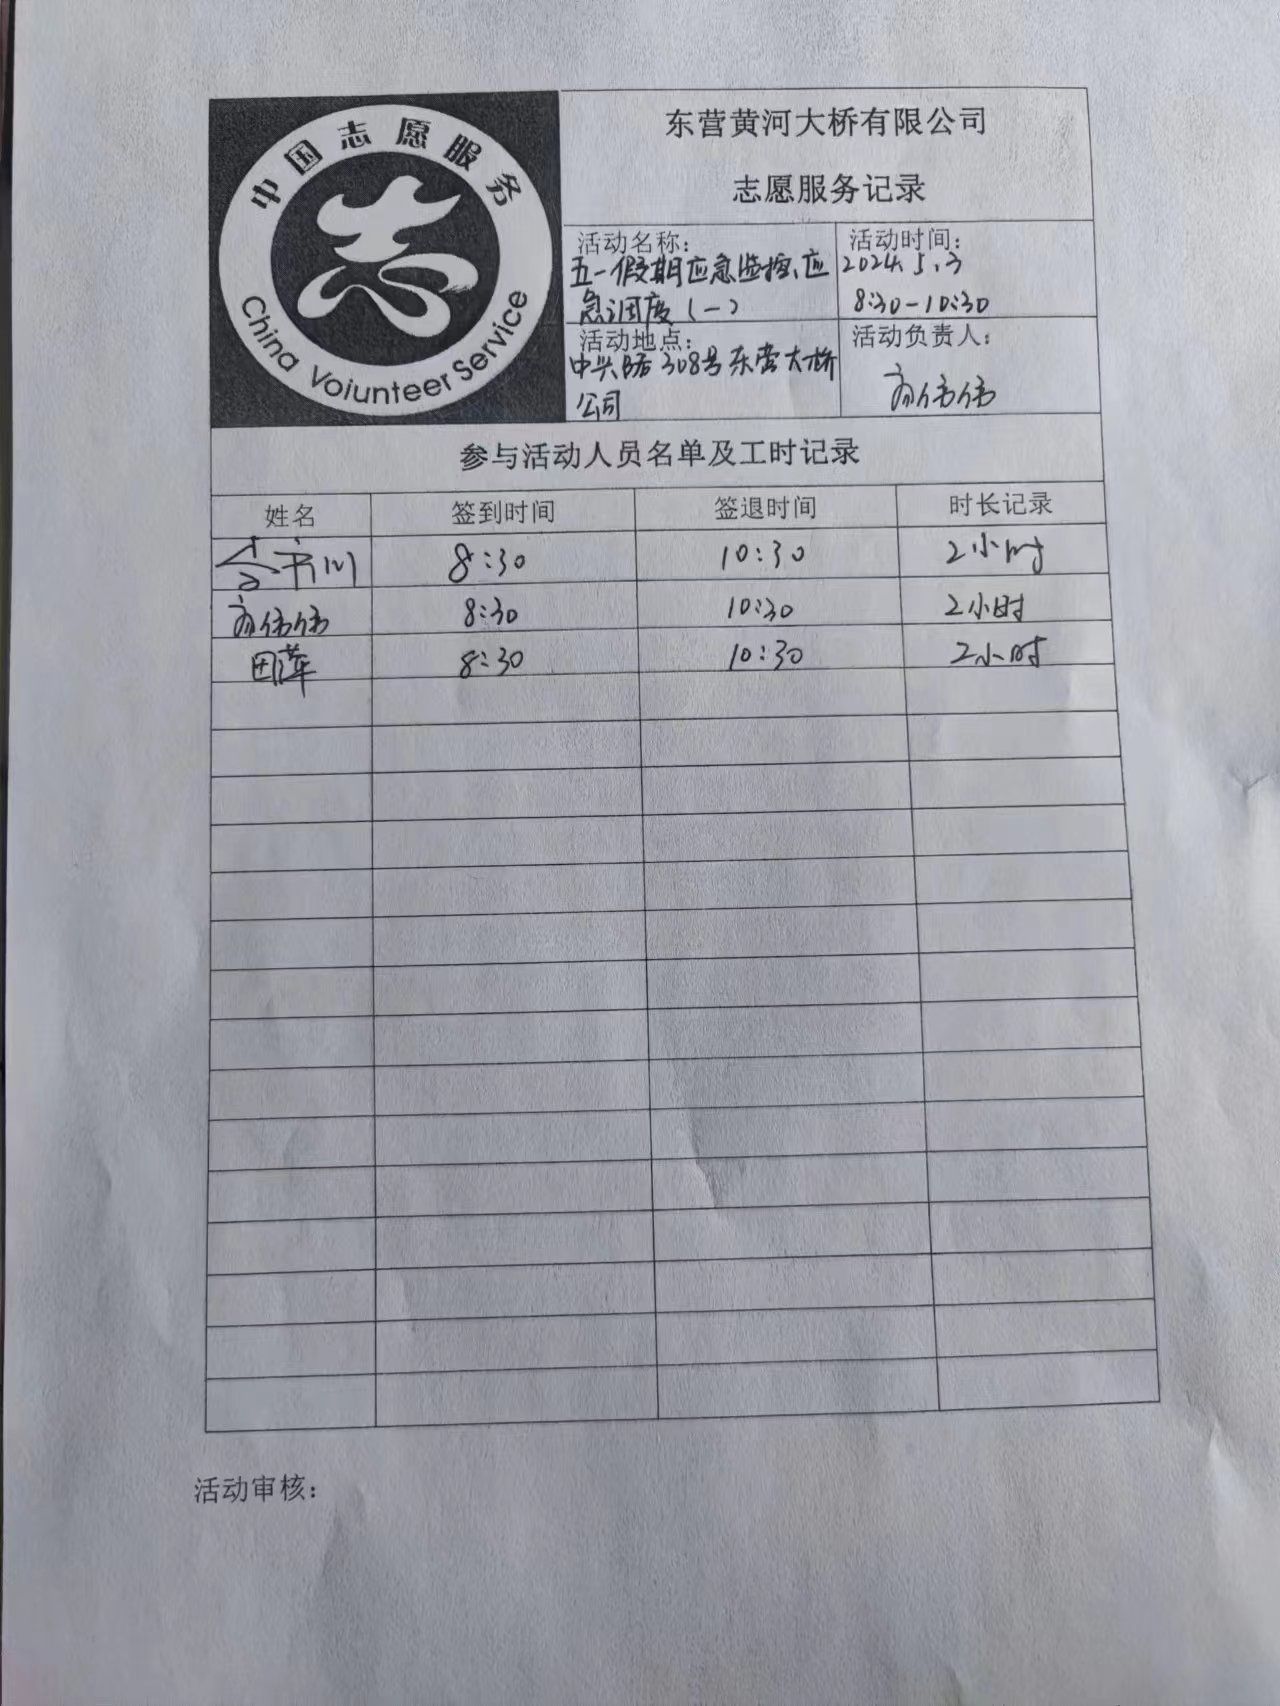 中国志愿服务
China Voiunteer Service
东营黄河大桥有限公司
志愿服务记录
活动名称:
五一假期应急监控、应
急调度(一)
活动时间:
2024.5.3
8:30-10:30
活动地点:
中兴路308号东营大桥
公司
活动负责人:
伟伟
参与活动人员名单及工时记录
姓名 签到时间 签退时间 时长记录
8:30 10:30 2小时
伟伟 8:30 10:30 2小时
田萍 8:30 10:30 2小时
活动审核: